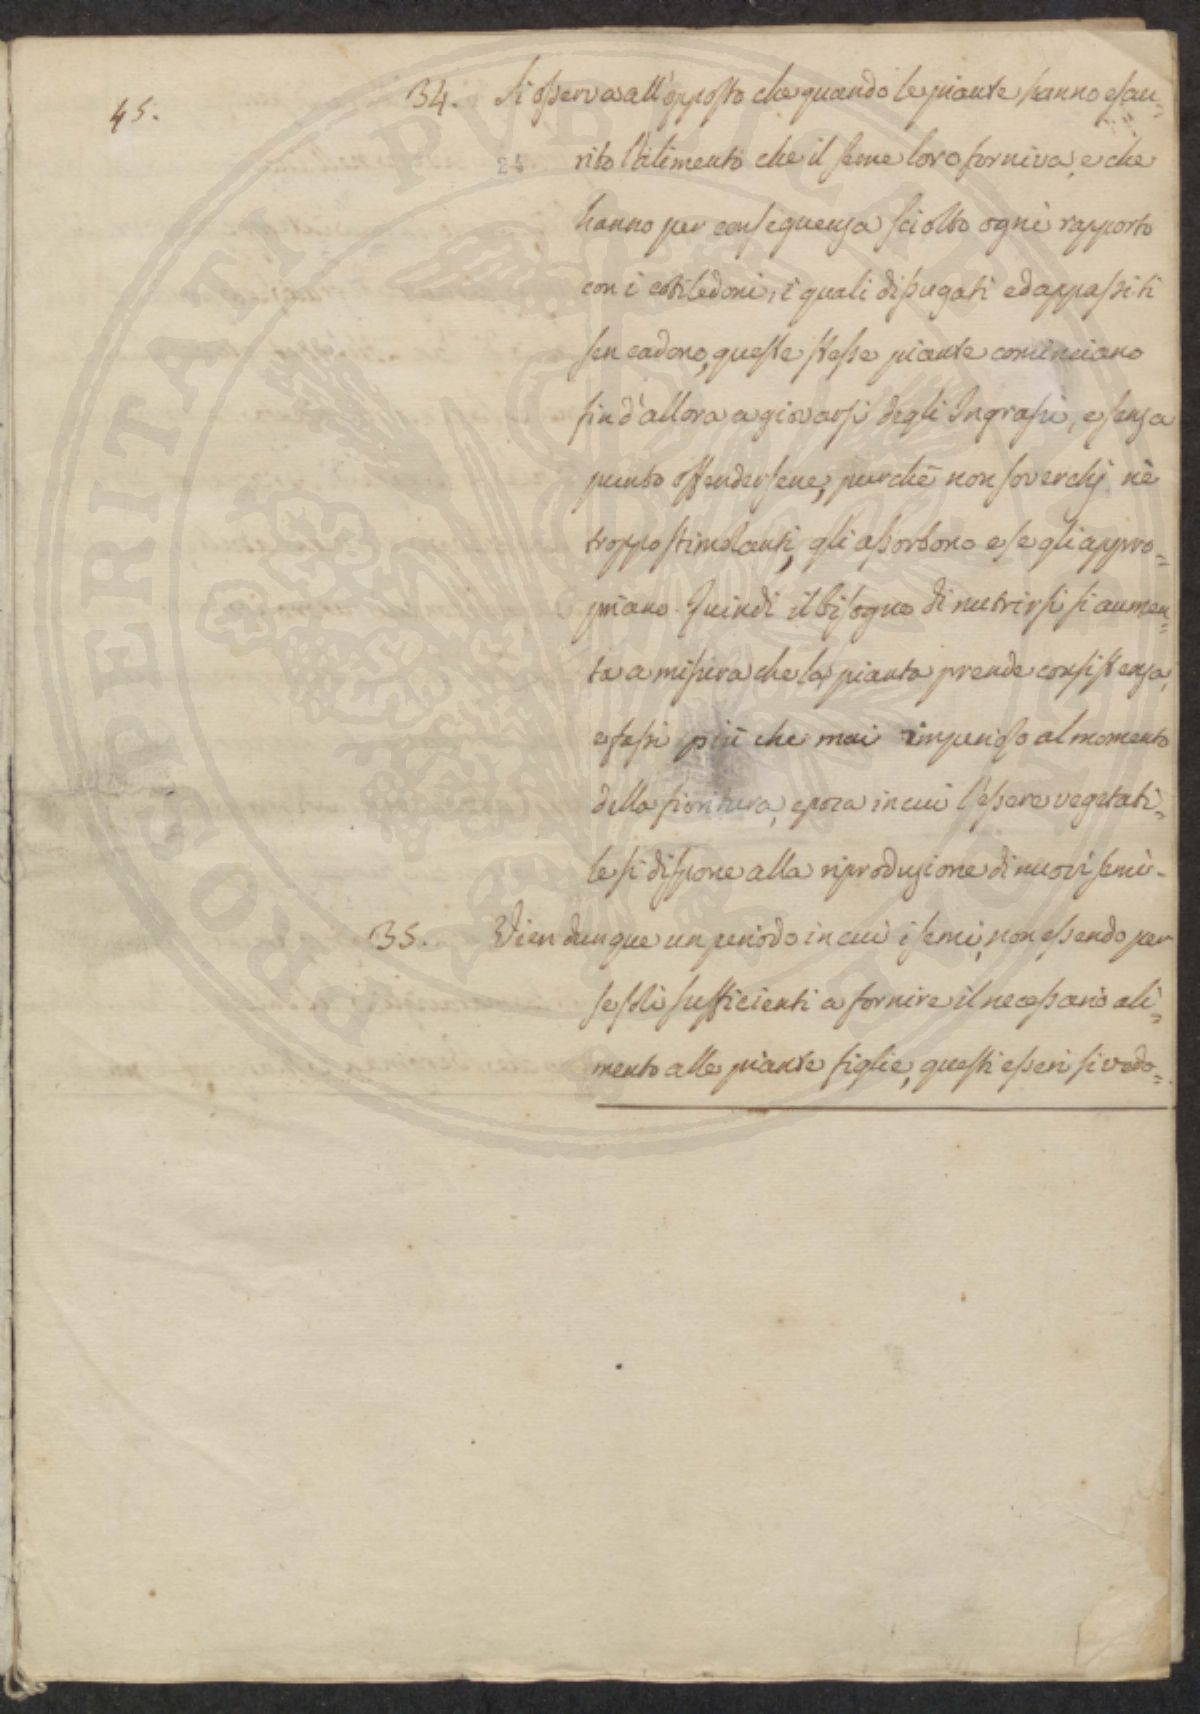 45.
34. Si osserva all'opposto che quando le piante hanno esau=
25
rito l'alimento che il seme loro forniva, e che
hanno per conseguenza sciolto ogni rapporto
con i cotiledoni, i quali disugati ed appassiti
sen cadono, queste stesse piante cominciano
fin d'allora a giovarsi degli Ingrassi, e senza
punto offendersene, purchè non soverchj nè
troppo stimolanti, gli assorbono e se gli appro=
priano. Quindi il bisogno di nutrirsi si aumen=
ta a misura che la pianta prende consistenza,
e fassi più che mai imperioso al momento
della fioritura, epoca in cui l'essere vegetabi=
le si dispone alla riproduzione di nuovi semi.
35. Vien dunque un periodo in cui i semi, non essendo per
se soli sufficienti a fornire il necessario ali=
mento alle piante figlie, questi esseri si vedo=
PROSPERITATI PVBLICAE